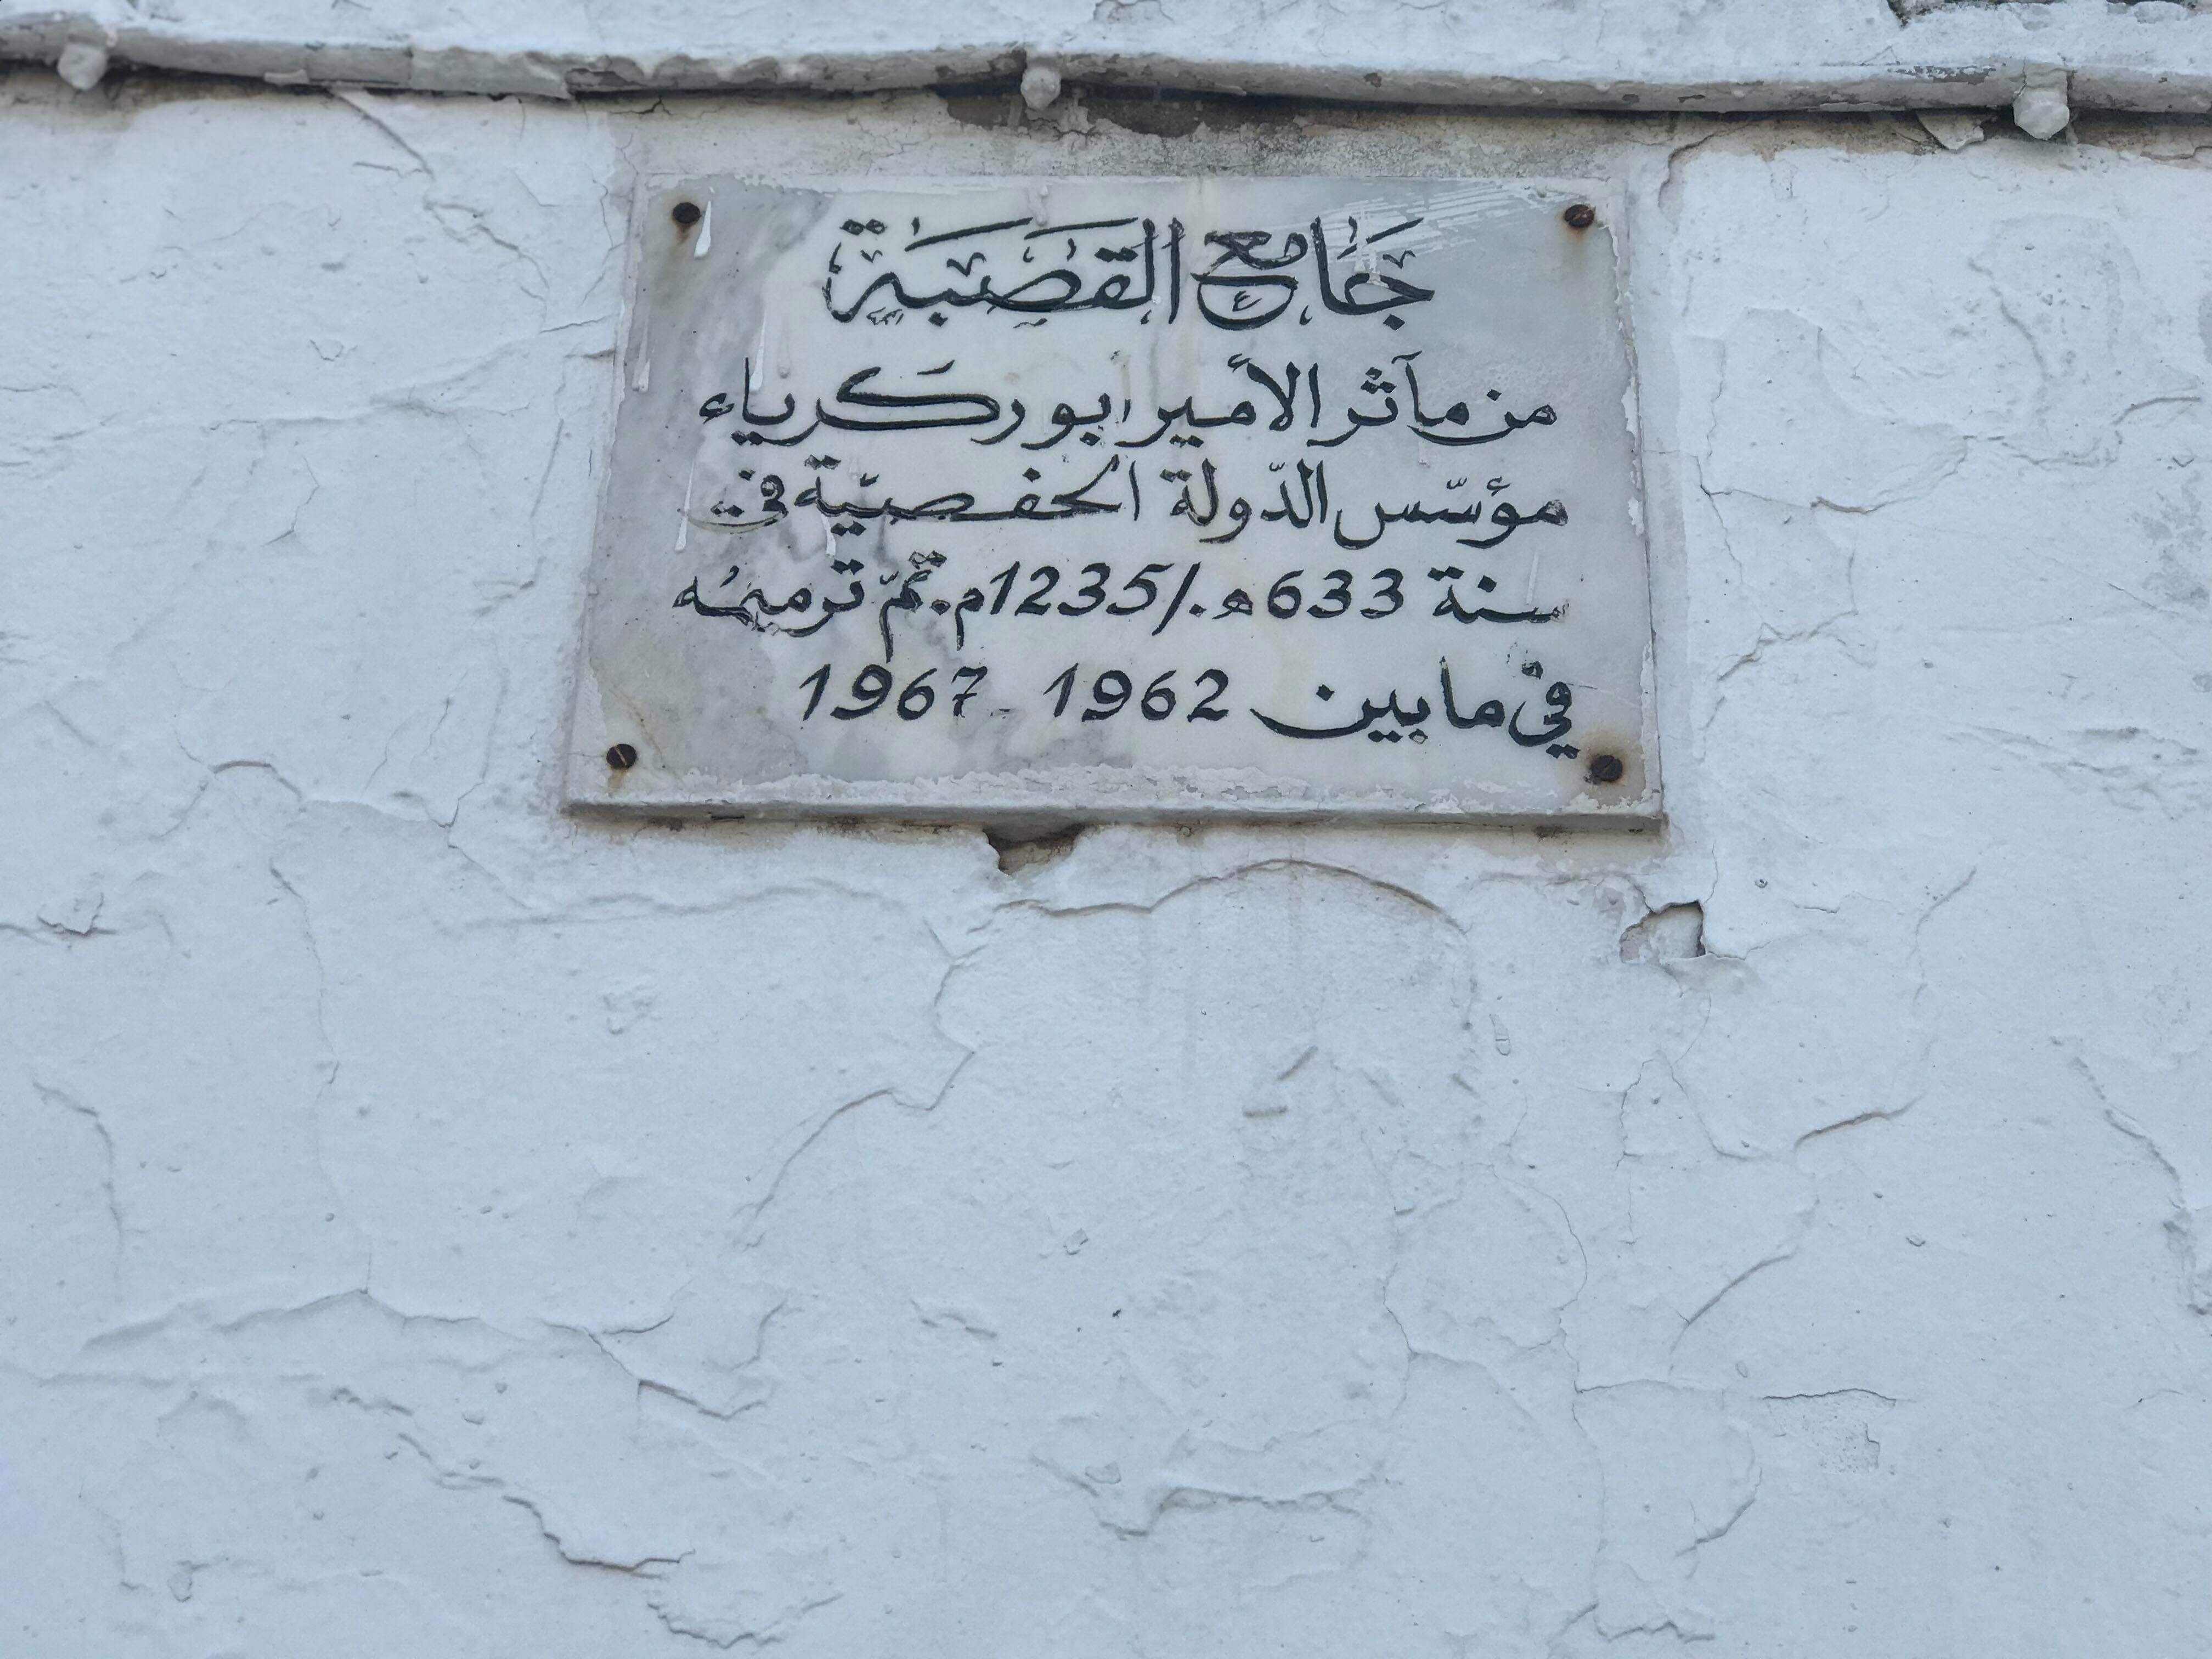 جَامِع القَصَبَة
من مآثر الأمير ابو زكرياء
مؤسّس الدّولة الحفصيّة في
سنة 633 هـ./1235م. تمّ ترميمُه
في ما بين 1962 - 1967